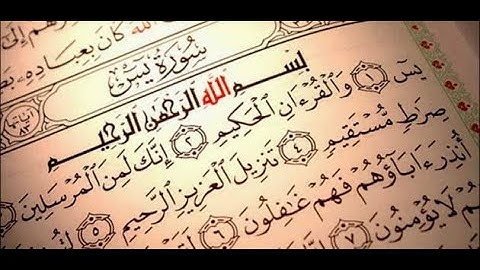 ٱللَّهَ كَانَ بِعِبَادِهِۦ
سُورَةُ يسٓ
آياتها ٨٣
بِسْمِ ٱللَّهِ ٱلرَّحْمَٰنِ ٱلرَّحِيمِ
يسٓ ١ وَٱلْقُرْءَانِ ٱلْحَكِيمِ ٢ إِنَّكَ لَمِنَ ٱلْمُرْسَلِينَ
صِرَٰطٍ مُّسْتَقِيمٍ ٤ تَنزِيلَ ٱلْعَزِيزِ ٱلرَّحِيمِ ٥
أُنذِرَ ءَابَآؤُهُمْ فَهُمْ غَٰفِلُونَ ٦
لَا يُؤْمِنُونَ ٧